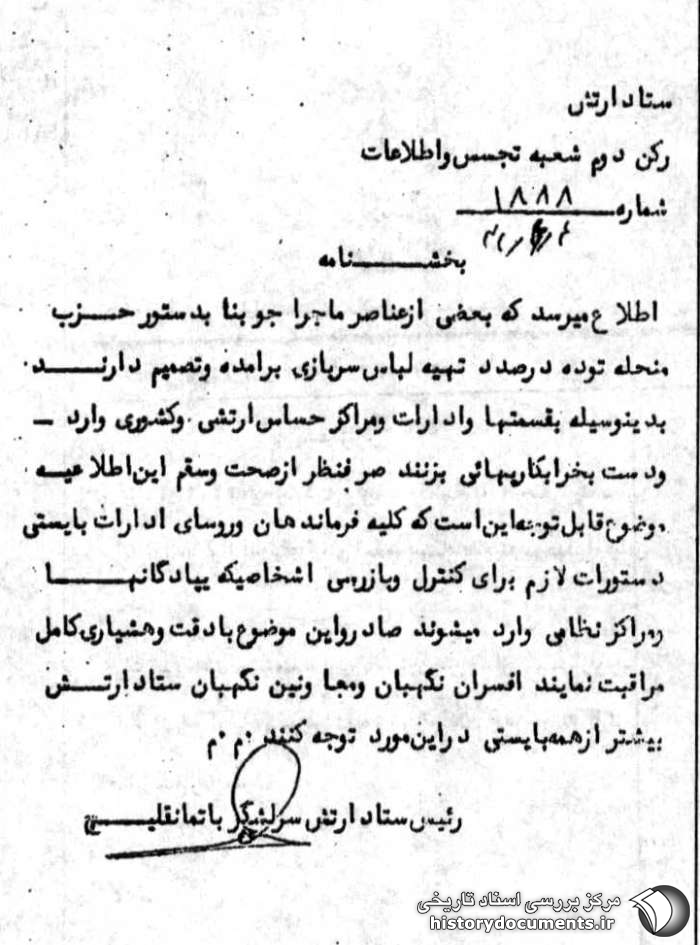 ستاد ارتش
رکن دوم شعبه تجسس و اطلاعات
شماره ۱۸۸۸
بخشنامه
اطلاع میرسد که بعضی از عناصر ماجراجو بنا بدستور حزب
منحله توده درصدد تهیه لباس سربازی برامده وتصمیم دارند
بدینوسیله بقسمتها وادارات ومراکز حساس ارتشی وکشوری وارد ـ
ودست بخرابکاریهائی بزنند صرفنظر ازصحت وسقم این اطلاعیه
موضوع قابل توجه این است که کلیه فرماندهان وروسای ادارات بایستی
دستورات لازم برای کنترل وبازرسی اشخاصیکه بپادگانها
ومراکز نظامی وارد میشوند صادر واین موضوع بادقت وهشیاری کامل
مراقبت نمایند افسران نگهبان ومعاونین نگهبان ستاد ارتش
بیشتر ازهمه بایستی دراین مورد توجه کنند م.م
رئیس ستاد ارتش سرلشگر باتمانقلیچ
مرکز بررسی اسناد تاریخی
historydocuments.ir